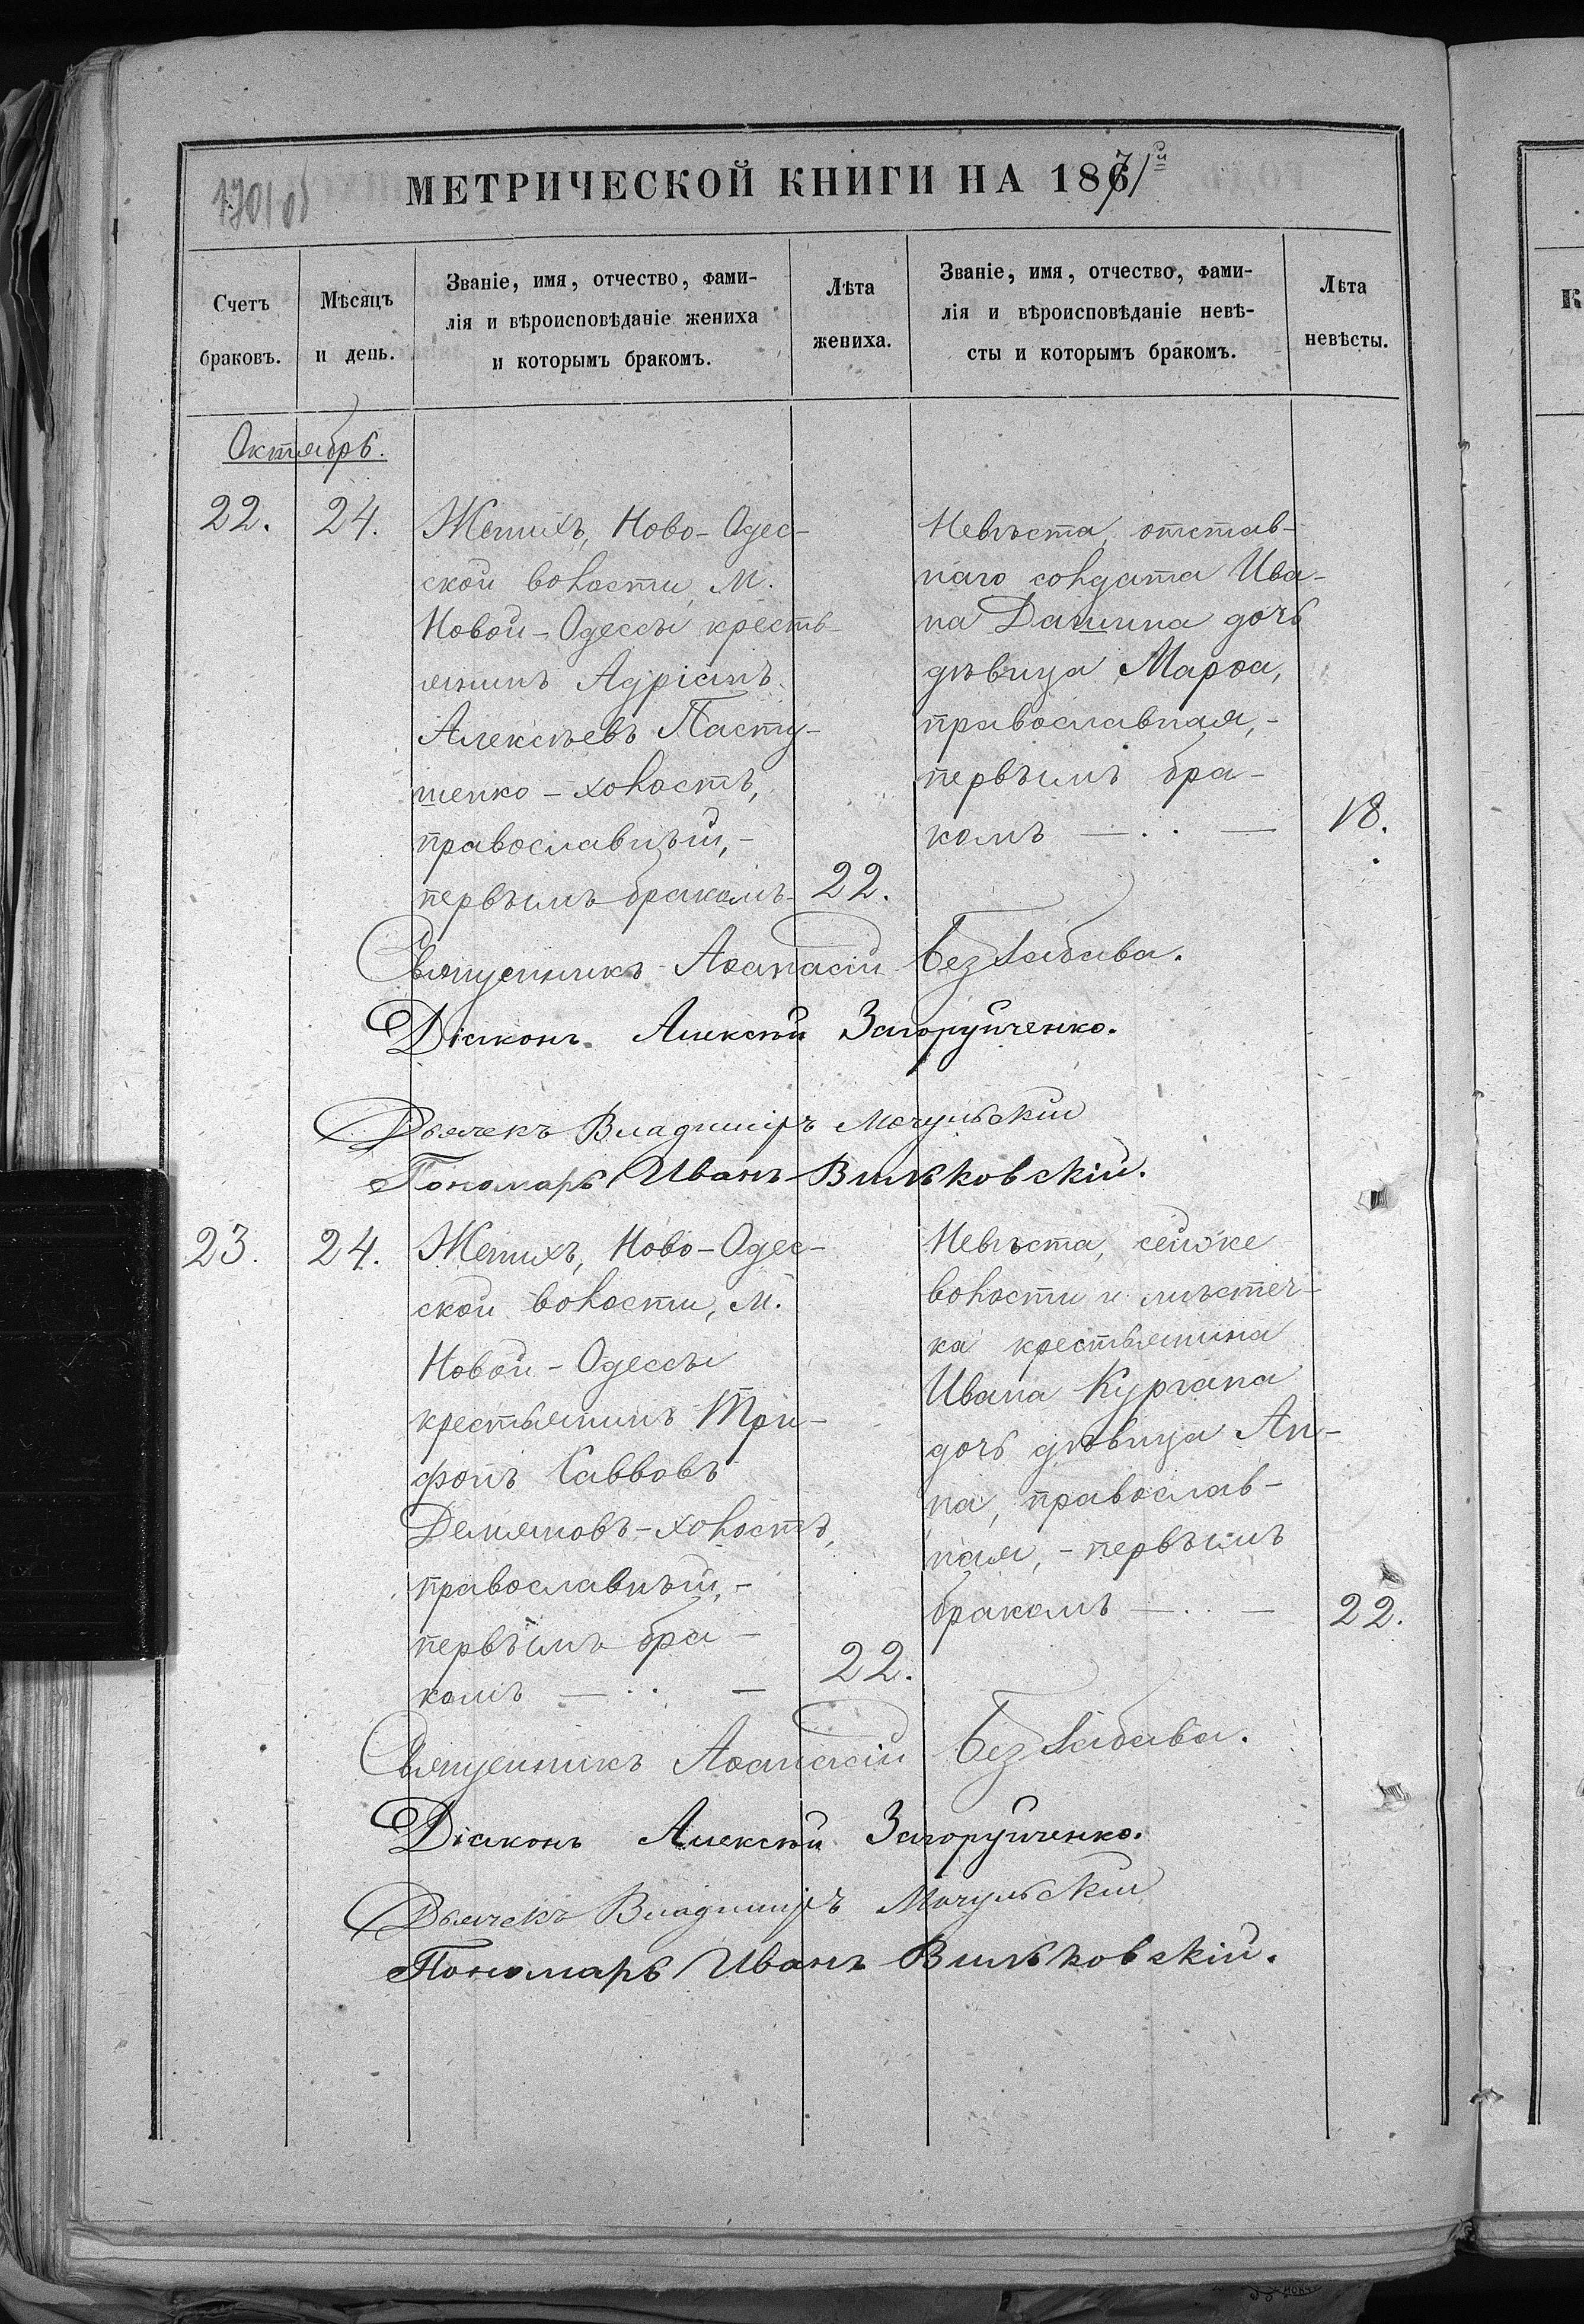 170 об
МЕТРИЧЕСКОЙ КНИГИ НА 1871й
Счетъ
браковъ.
Мѣсяцъ
и день.
Званіе, имя, отчество, фами-
лія и вѣроисповѣданіе жениха
и которымъ бракомъ.
Лѣта
жениха.
Званіе, имя, отчество, фами-
лія и вѣроисповѣданіе невѣ-
сты и которымъ бракомъ.
Лѣта
невѣсты.
Октябрь.
22.
24.
Женихъ, Ново-Одес-
ской волости, м.
Новой-Одессы кресть-
янинъ Адріанъ
Алексѣевъ Пасту-
шенко - холостъ,
православный, -
первымъ бракомъ-
22.
Невѣста, отстав-
наго солдата Ива-
на Дашина дочь
дѣвица Марѳа,
православная, -
первымъ бра-
комъ — . . —
18.
Священникъ Аѳанасій Беззабава.
Діаконъ Алексѣй Загоруйченко.
Дьячекъ Владиміръ Мочульскій
Пономарь Иванъ Вильковскій.
23.
24.
Женихъ, Ново-Одес-
ской волости, м.
Новой-Одессы
крестьянинъ Три-
фонъ Саввовъ
Демяновъ-холостъ,
православный, -
первымъ бра-
комъ — . . —
22.
Невѣста, сейже
волости и мѣстеч-
ка крестьянина
Ивана Кургана
дочь дѣвица Ан-
на, православ-
ная, - первымъ
бракомъ — . . —
22.
Священникъ Аѳанасій Беззабава.
Діаконъ Алексѣй Загоруйченко.
Дьячекъ Владиміръ Мочульскій
Пономарь Иванъ Вильковскій.
К